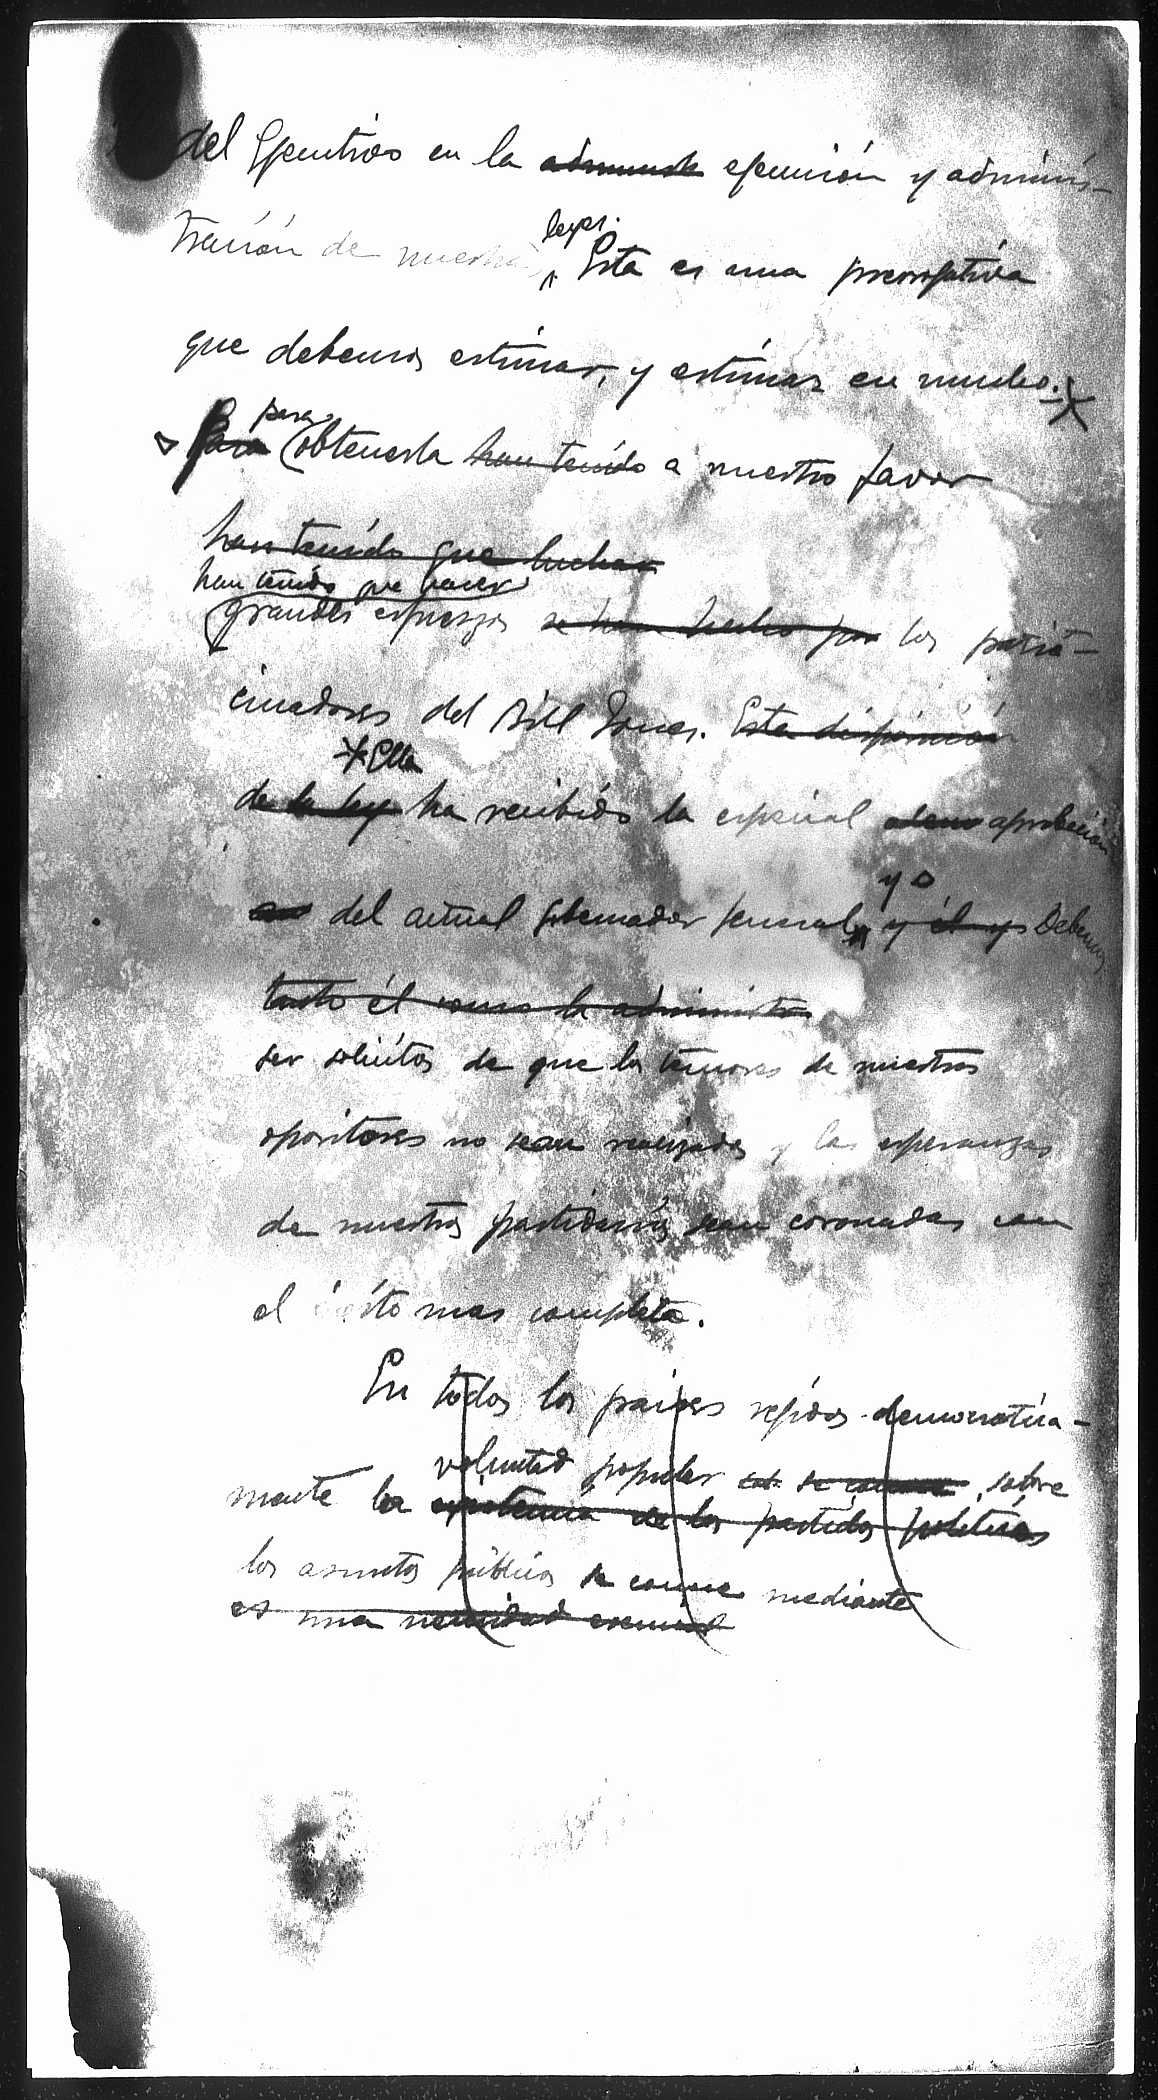 del Ejecutivo en la administr ejecución y adminis-
leyes.
tración de nuestras Esta es una prerrogativa
que debemos estimar, y estimar en mucho.
para
Para obtenerla han tenido a nuestro favor
han tenido que luchar
han tenido que hacer
grandes esfuerzos se han hecho por los patro-
cinadores del Bill Jones. Esta disposición
Ella
de la ley ha recibido la especial aprobación
y
del actual gobernador general, y él y Debemos
tanto él como la administra
ser solícitos de que los temores de nuestros
opositores no sean realizados y las esperanzas
de nuestros partidarios sean coronadas con
el éxito mas completo.
En todos los países regidos democrática-
voluntad popular se conoce sobre
mente la existencia de los partidos políticos
los asuntos públicos se conoce mediante
es una necesidad esencial